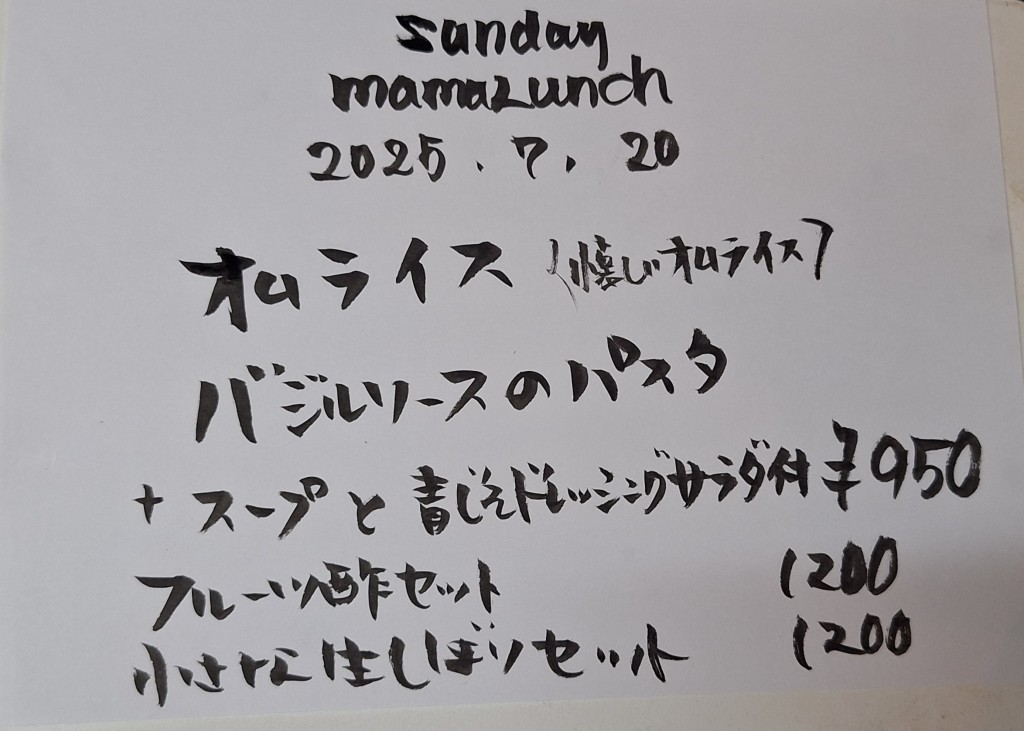 sunday
mamaLunch
2025.7.20
オムライス(懐しオムライス)
バジルソースのパスタ
+スープと青じそドレッシングサラダ付¥950
フルーツ酢セット 1200
小さな生しぼりセット 1200